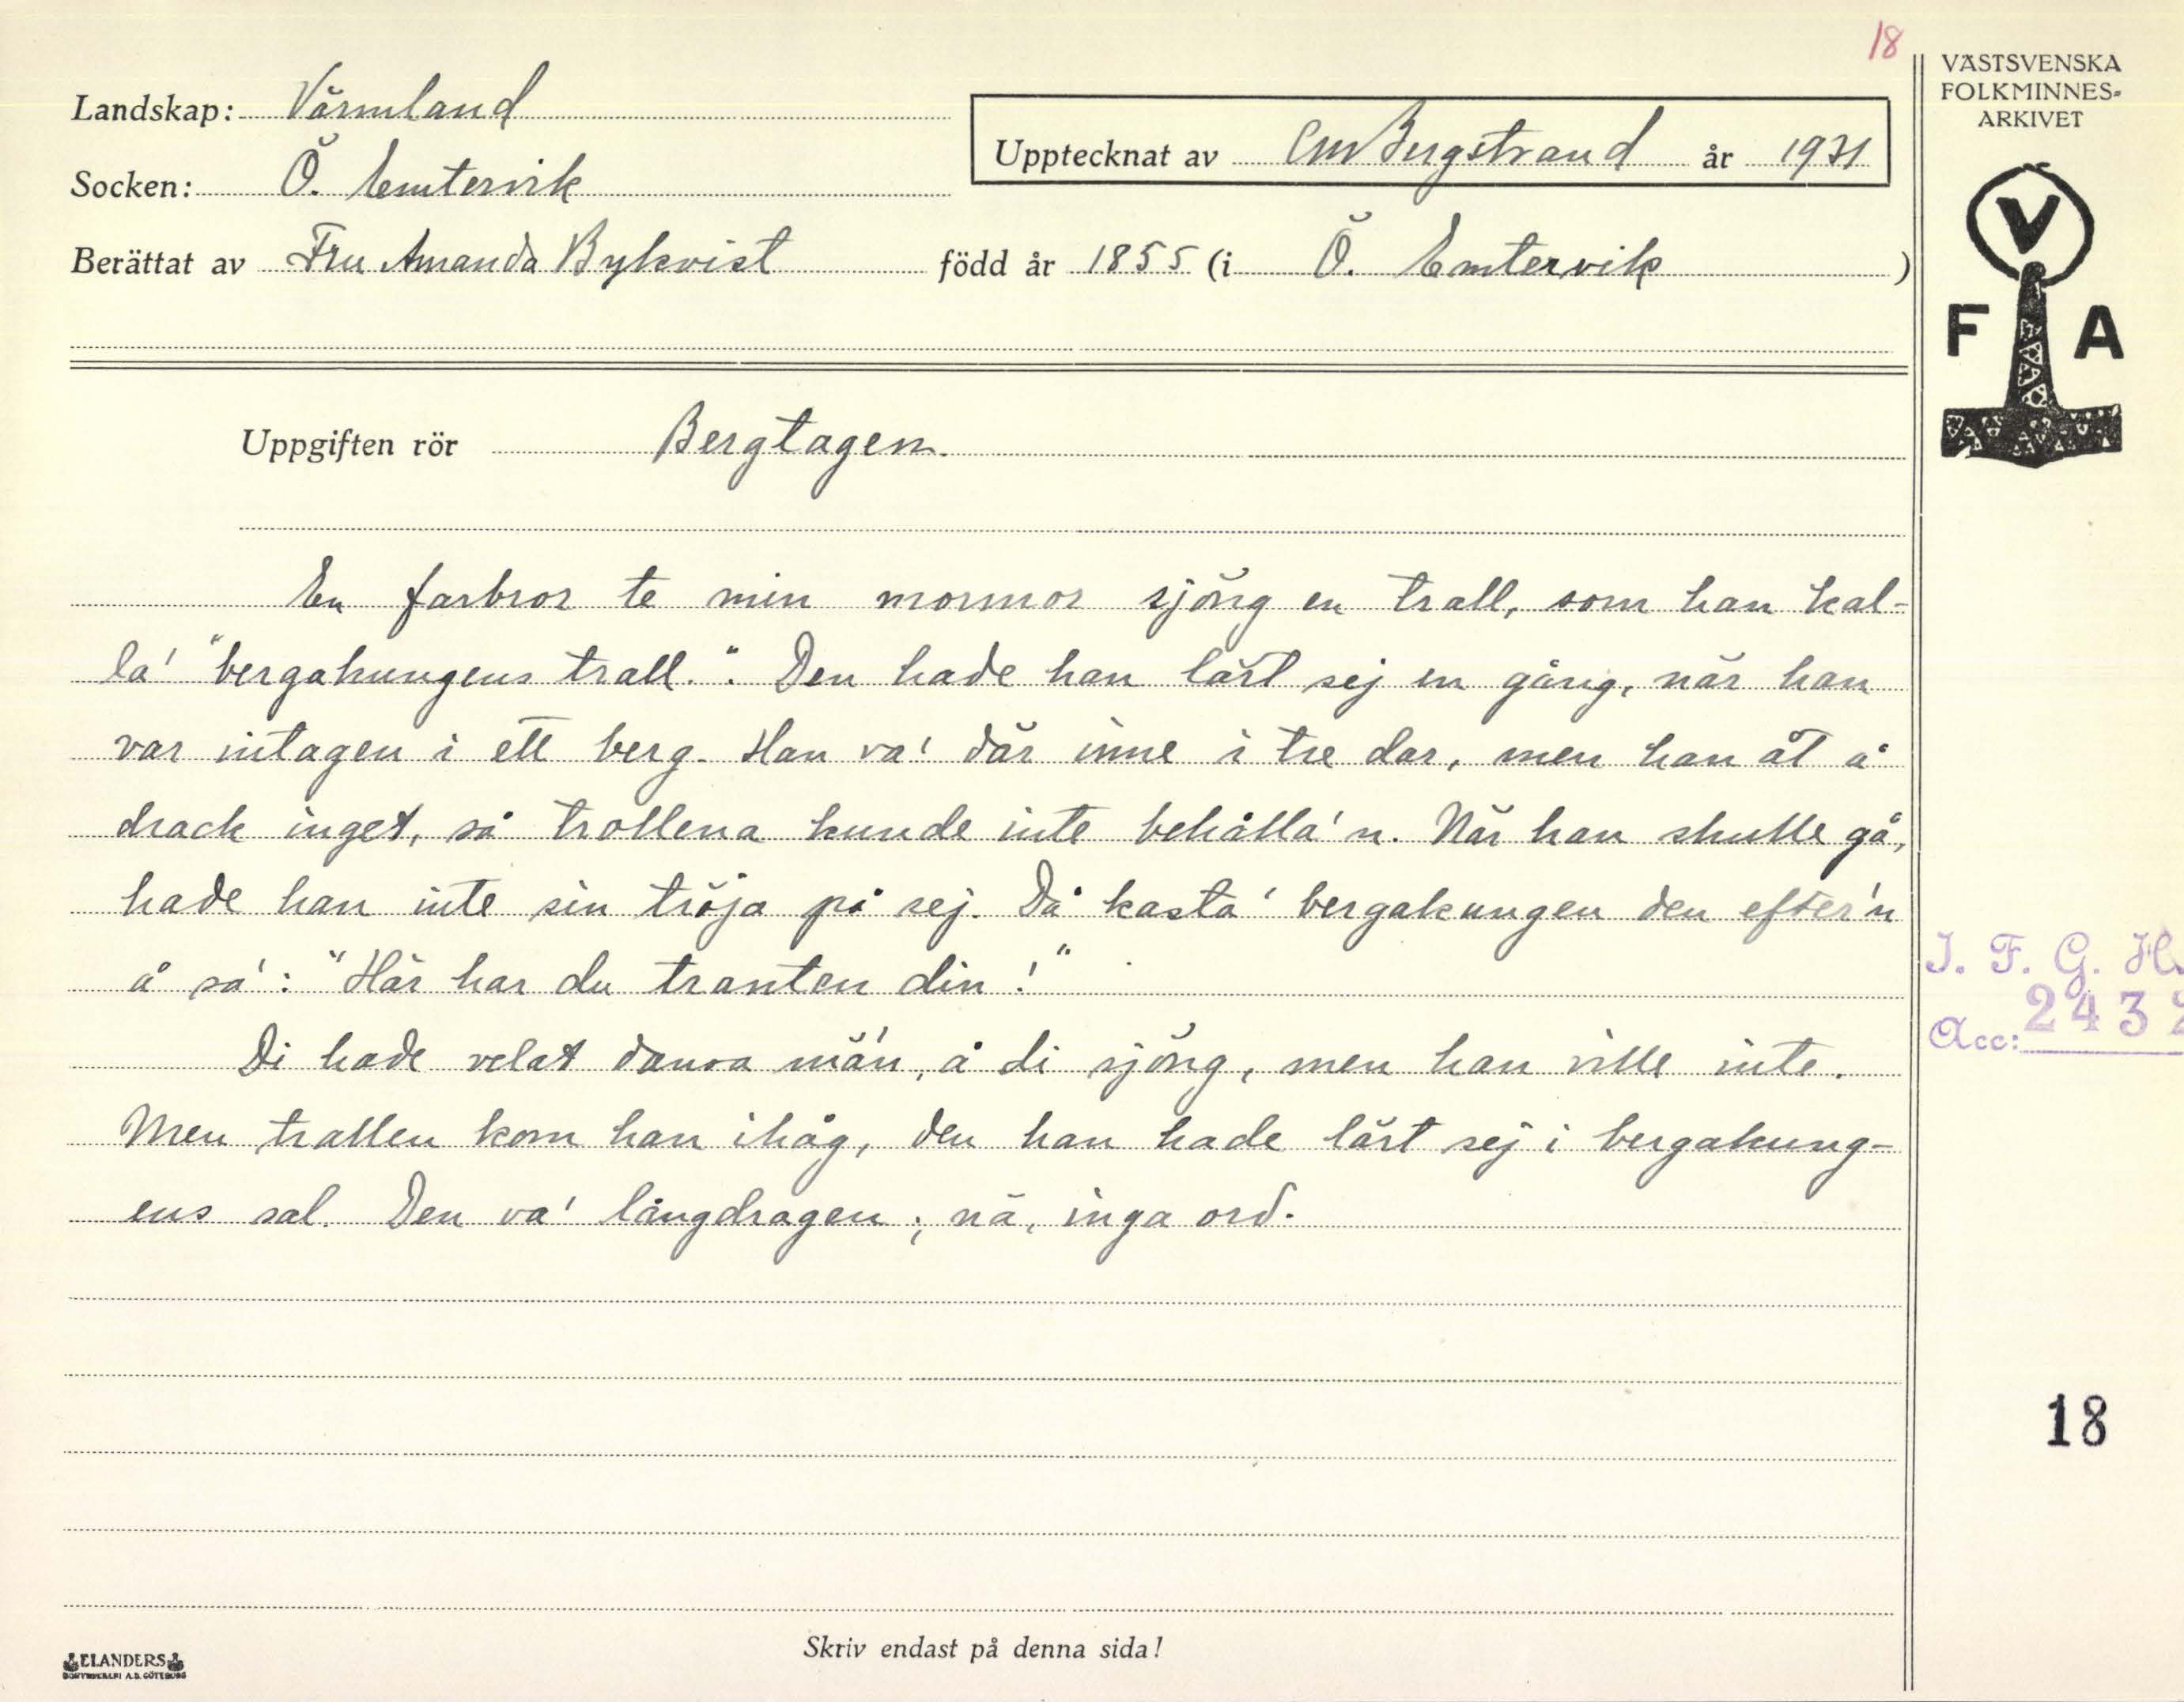 18
VÄSTSVENSKA
FOLKMINNES-
ARKIVET
Landskap: Värmland
Upptecknat av Bergstrand år 1931
Socken: Ö. Emtervik
Berättat av Fru Amanda Bykvist född år 1855 (i Ö. Emtervik)
V
F A
Uppgiften rör Bergtagen.
En farbror te min mormor sjöng en trall, som han kal-
la' "bergakungens trall.". Den hade han lärt sej en gång, när han
var intagen i ett berg. Han va' där inne i tre dar, men han åt å
drack inget, så trollena kunde inte behålla'n. När han skulle gå,
hade han inte sin tröja på sej. Då kasta' bergakungen den efter'n
å sa': "Här har du tranten din!"
Di hade velat dansa mä'n, å di sjöng, men han ville inte.
Men trallen kom han ihåg, den han hade lärt sej i bergakung-
ens sal. Den va' långdragen; nä, inga ord.
I. F. G. H.
Acc: 2432
18
Skriv endast på denna sida!
ELANDERS
BOKTRYCKERI A.B. GÖTEBORG